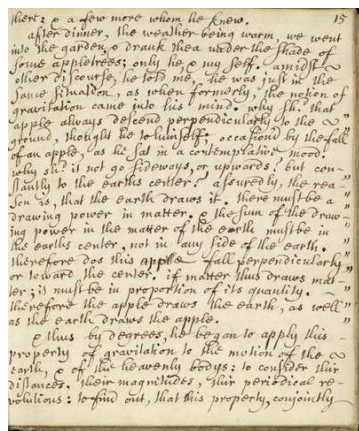 15
there: & a few more whom he knew.
after dinner, the weather being warm, we went
into the garden, & drank thea under the shade of
some appletrees; only he & my self. amidst
other discourse, he told me, he was just in the
same situation, as when formerly, the notion of
gravitation came into his mind. why sh.d that
apple always descend perpendicularly to the
ground, thought he to himself; occasion'd by the fall
of an apple, as he sat in a contemplative mood.
why sh.d it not go sideways, or upwards? but con-
stantly to the earths center? assuredly, the rea-
son is, that the earth draws it. there must be a
drawing power in matter. & the sum of the draw-
ing power in the matter of the earth must be in
the earths center, not in any side of the earth.
therefore dos this apple fall perpendicularly
or toward the center. if matter thus draws mat-
ter; it must be in proportion of its quantity.
therefore the apple draws the earth, as well
as the earth draws the apple.
& thus by degrees, he began to apply this
property of gravitation to the motion of the
earth, & of the heavenly bodys: to consider thir
distances, their magnitudes, thir periodical re-
volutions: to find out, that this property, conjointly